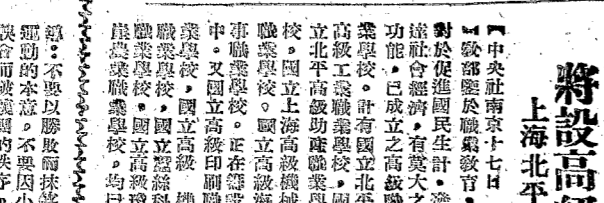 將設高
上海北平
中央社南京十七日
教部鑒於職業教育,
對於促進國民生計,
達社會經濟,有莫大之
功能,已成立之高級職
業學校,計有國立北平
高級工業職業學校,國
立北平高級助產職業學
校,國立上海高級機械
職業學校。國立高級
事職業學校。正在籌
中。又國立高級印刷職
業學校,國立高級 機
職業學校,國立 絲科
職業學校。國立高級
農業職業學校。均已
導:不要以勝敗而抹
運動的本意,不要因小